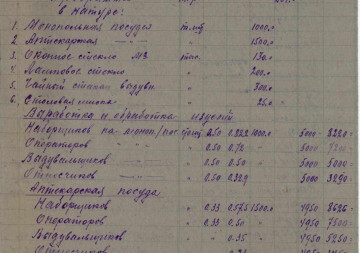 в натуре:
1. Монопольная посуда тыс. 1000.
2. Аптекарская —"— 1500.
3. Оконное стекло м² тыс. 130.
4. Ламповое стекло " 200.
5. Чайный стакан выдувн. " 300.
6. Столовая " 25.
Выработка и обработка изделий
Наборщиков на моноп/пос. 0.50 1000 5000
Операторов " 0.50 0.72 — 5000
Выдувальщиков " 0.50 0.50 — 5000 5000
Относчиков " 0.50 0.329 5000 3290
Аптекарская посуда
Наборщиков " 0.33 0.575 1500. 4950 8626
Операторов " 0.33 0.50 " 4950 7500
Выдувальщиков " " 0.35 " 4950 5250
Относчиков